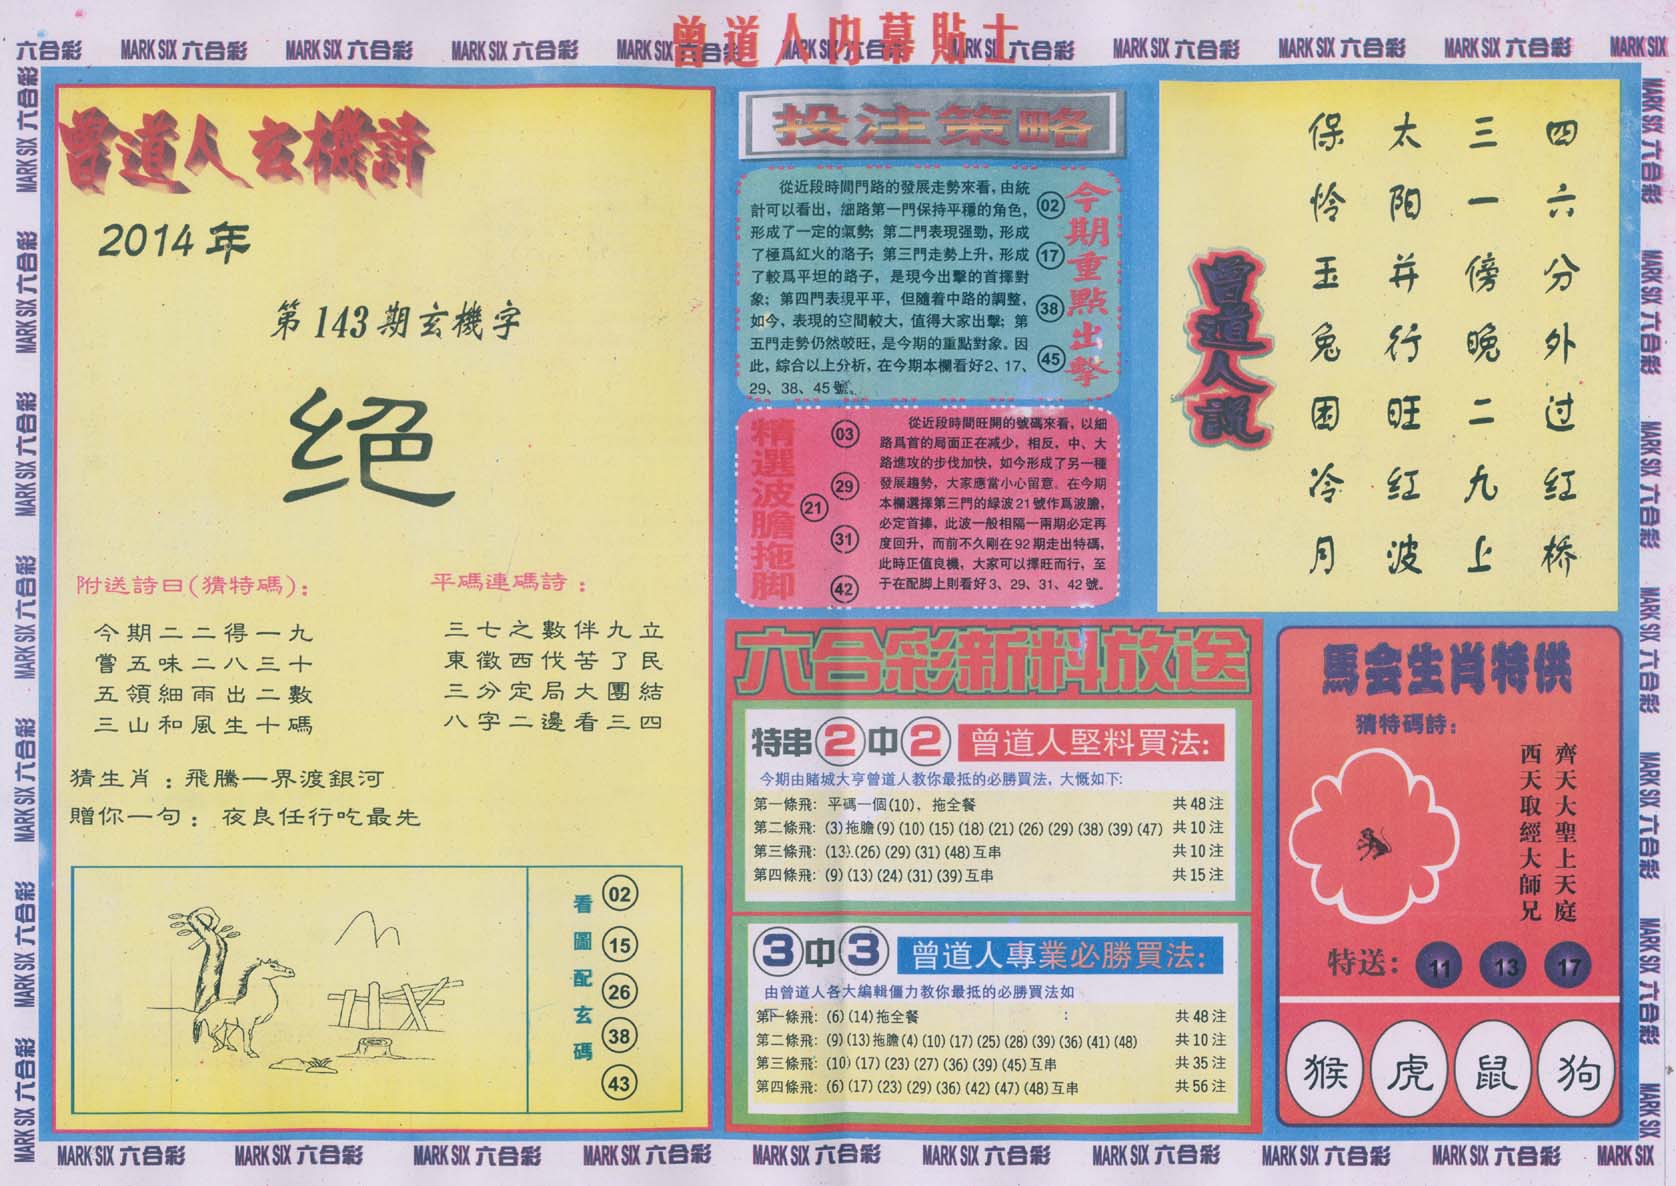 曾道人内幕貼士
六合彩 MARK SIX 六合彩 MARK SIX 六合彩 MARK SIX 六合彩 MARK SIX 六合彩 MARK SIX 六合彩 MARK SIX 六合彩 MARK SIX 六合彩 MARK SIX 六合彩 MARK SIX 六合彩 MARK SIX
曾道人玄機詩
2014年
第143期玄機字
绝
附送詩曰(猜特碼):
今期二二得一九
嘗五味二八三十
五領細雨出二數
三山和風生十碼
平碼連碼詩:
三七之數伴九立
東徵西伐苦了民
三分定局大團結
八字二邊看三四
猜生肖:飛騰一界渡銀河
贈你一句:夜良任行吃最先
看圖配玄碼
02
15
26
38
43
投注策略
從近段時間門路的發展走勢來看,由統
計可以看出,細路第一門保持平穩的角色,
形成了一定的氣勢;第二門表現强勁,形成
了極爲紅火的路子;第三門走勢上升,形成
了較爲平坦的路子,是現今出擊的首擇對
象;第四門表現平平,但隨着中路的調整,
如今,表現的空間較大,值得大家出擊;第
五門走勢仍然較旺,是今期的重點對象。因
此,綜合以上分析,在今期本欄看好2、17、
29、38、45號。
02
17
38
45
今期重點出擊
精選波膽拖脚
03
29
21
31
42
從近段時間旺開的號碼來看,以細
路爲首的局面正在减少,相反,中、大
路進攻的步伐加快,如今形成了另一種
發展趨勢,大家應當小心留意。在今期
本欄選擇第三門的緑波21號作爲波膽,
必定首捧,此波一般相隔一兩期必定再
度回升,而前不久剛在92期走出特碼,
此時正值良機,大家可以擇旺而行,至
于在配脚上則看好3、29、31、42號。
六合彩新料放送
特串2中2 曾道人堅料買法:
今期由賭城大亨曾道人教你最抵的必勝買法,大慨如下:
第一條飛: 平碼一個(10),拖全餐 共48注
第二條飛: (3)拖膽(9)(10)(15)(18)(21)(26)(29)(38)(39)(47) 共10注
第三條飛: (13)(26)(29)(31)(48)互串 共10注
第四條飛: (9)(13)(24)(31)(39)互串 共15注
3中3 曾道人專業必勝買法:
由曾道人各大編輯僵力教你最抵的必勝買法如
下:
第一條飛: (6)(14)拖全餐 共48注
第二條飛: (9)(13)拖膽(4)(10)(17)(25)(28)(39)(36)(41)(48) 共10注
第三條飛: (10)(17)(23)(27)(36)(39)(45)互串 共35注
第四條飛: (6)(17)(23)(29)(36)(42)(47)(48)互串 共56注
四六分外过红桥
三一傍晚二九上
太阳并行旺红波
保怜玉兔困冷月
曾道人説
馬会生肖特供
猜特碼詩:
齊天大聖上天庭
西天取經大師兄
特送: 11 13 17
猴 虎 鼠 狗
MARK SIX 六合彩 MARK SIX 六合彩 MARK SIX 六合彩 MARK SIX 六合彩 MARK SIX 六合彩 MARK SIX 六合彩 MARK SIX 六合彩
MARK SIX 六合彩 MARK SIX 六合彩 MARK SIX 六合彩 MARK SIX 六合彩 MARK SIX 六合彩 MARK SIX 六合彩 MARK SIX
MARK SIX 六合彩 MARK SIX 六合彩 MARK SIX 六合彩 MARK SIX 六合彩 MARK SIX 六合彩 MARK SIX 六合彩 MARK SIX 六合彩 MARK SIX 六合彩 MARK SIX 六合彩 MARK SIX